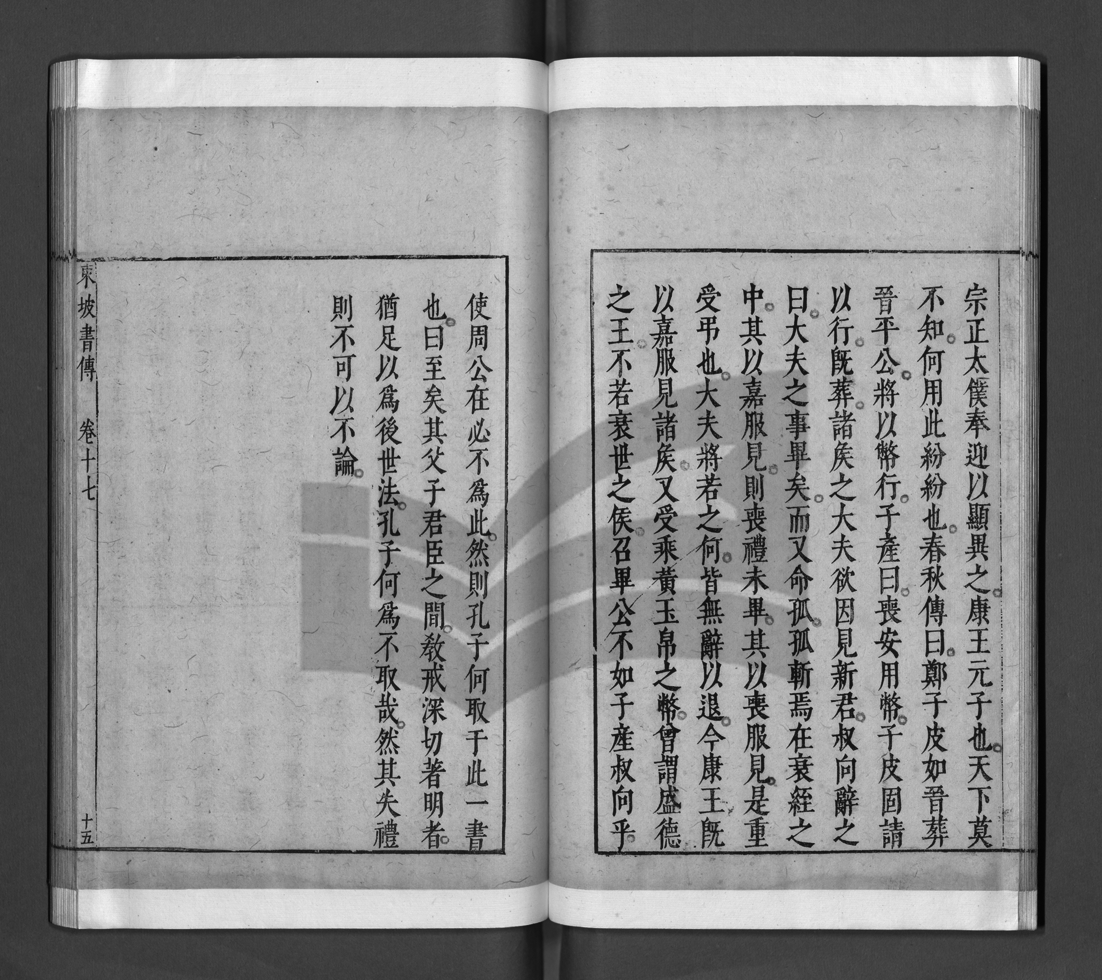 宗正太僕奉迎以顯異之。康王元子也。天下莫
不知。何用此紛紛也。春秋傳曰。鄭子皮如晉葬
晉平公。將以幣行。子產曰。喪安用幣。子皮固請
以行。旣葬。諸矦之大夫欲因見新君。叔向辭之
曰。大夫之事畢矣。而又命孤。孤斬焉在衰絰之
中。其以嘉服見。則喪禮未畢。其以喪服見。是重
受弔也。大夫將若之何。皆無辭以退。今康王旣
以嘉服見諸矦。又受乘黃玉帛之幣。曾謂盛德
之王。不若衰世之矦。召畢公不如子產叔向乎。
使周公在必不爲此。然則孔子何取于此一書
也。曰至矣其父子君臣之間。敎戒深切著明者。
猶足以爲後世法。孔子何爲不取哉。然其失禮
則不可以不論。
東坡書傳 卷十七 十五